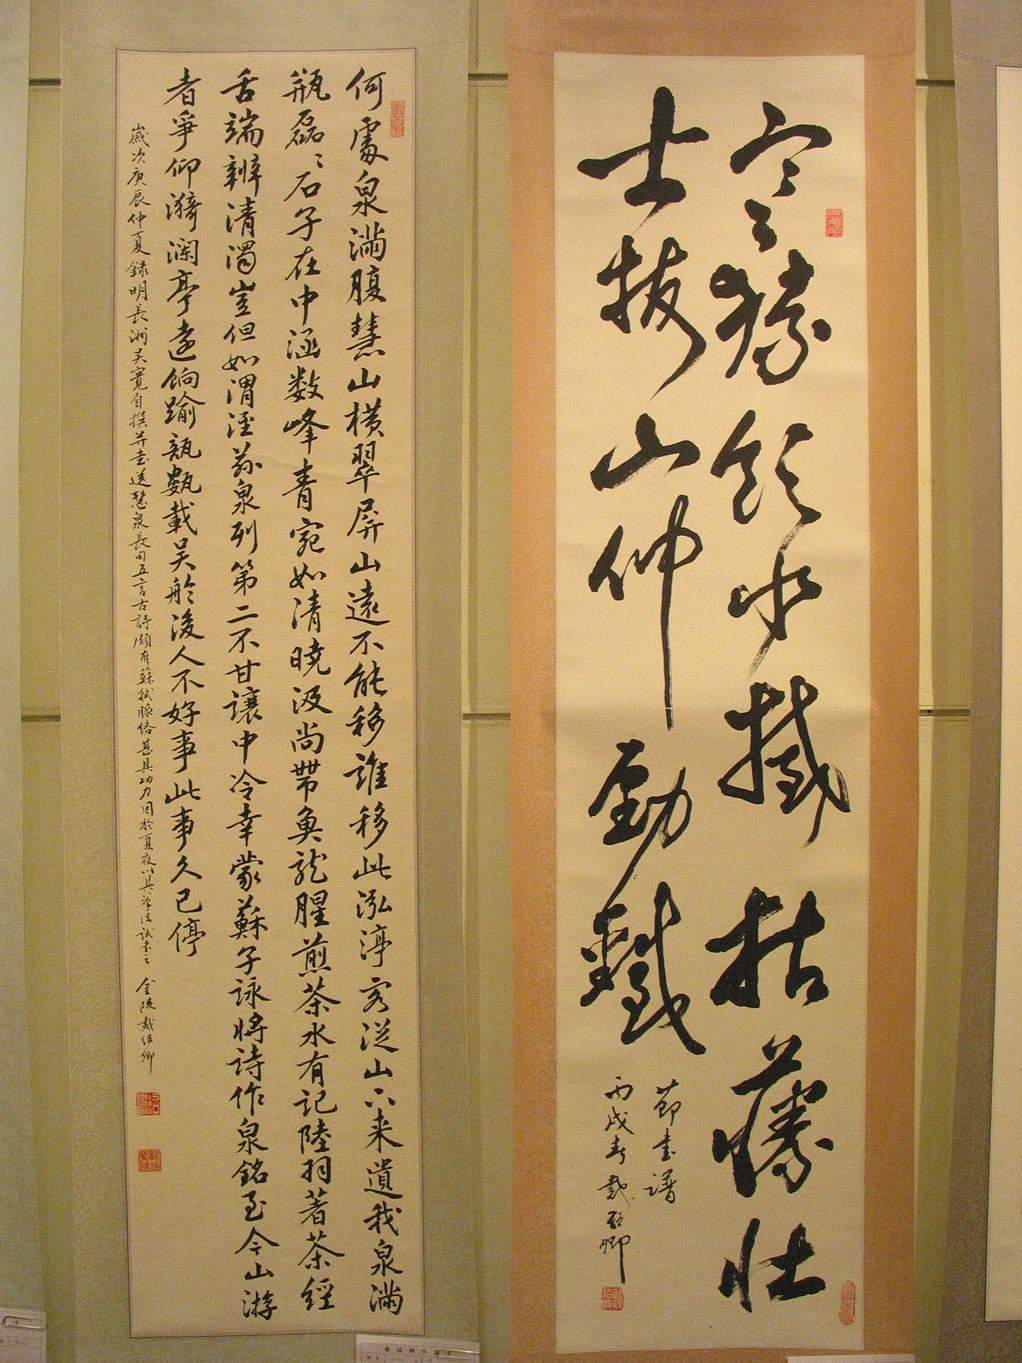 寒猿飲水撼枯藤壮
士拔山伸勁鐵
節書譜
丙戌春戴卿
何處泉滿腹慧山橫翠屏山遠不能移誰移此泓渟客從山下来遺我泉滿
瓶磊〻石子在中涵数峰青宛如清曉汲尚帶魚龍腥煎茶水有記陸羽著茶經
舌端辨清濁豈但如渭涇茲泉列第二不甘讓中冷幸蒙蘇子詠將詩作泉銘至今山游
者爭仰漪瀾亭遠餉踰瓿載吳舲後人不好事此事久已停
歲次庚辰仲夏録明長洲吳寬自撰并書送慧泉長句五言古詩頗有蘇軾脈絡甚具功力因於夏夜以其筆法試書之 金陵戴卿